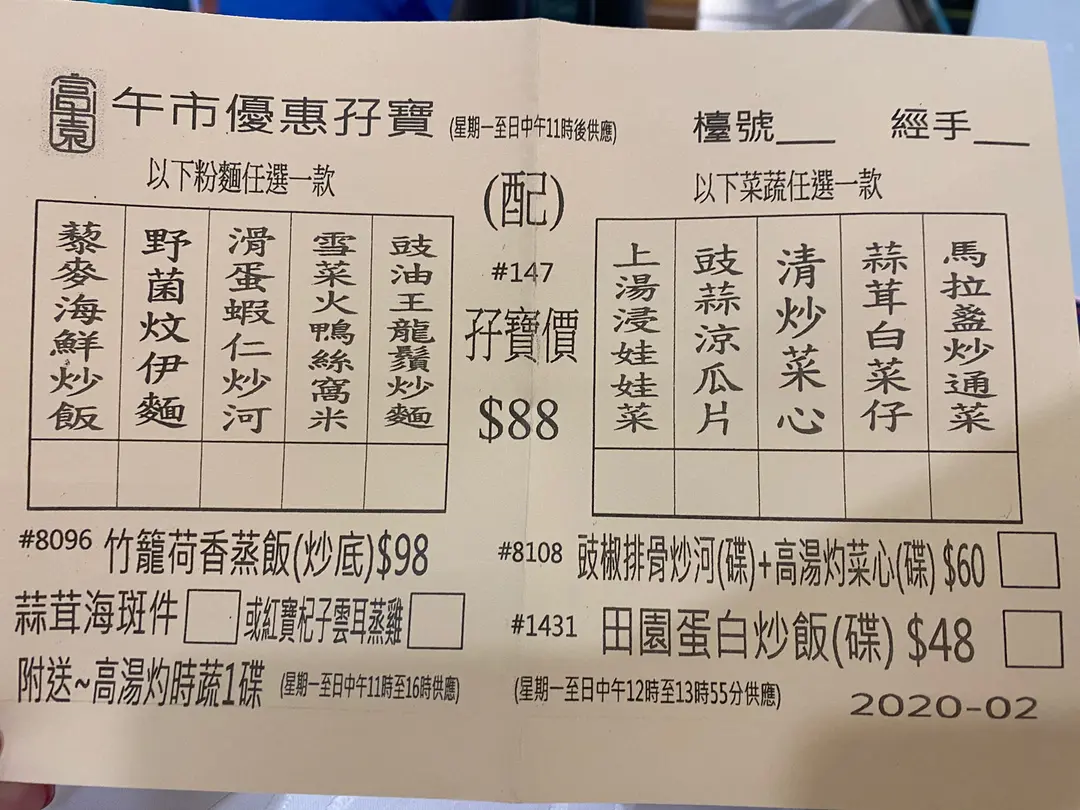 富臨
午市優惠孖寶(星期一至日中午11時後供應)
檯號__ 經手__
以下粉麵任選一款
藜麥海鮮炒飯
野菌炆伊麵
滑蛋蝦仁炒河
雪菜火鴨絲窩米
豉油王龍鬚炒麵
(配)
#147
孖寶價
$88
以下菜蔬任選一款
上湯浸娃娃菜
豉蒜涼瓜片
清炒菜心
蒜茸白菜仔
馬拉盞炒通菜
#8096 竹籠荷香蒸飯(炒底)$98
蒜茸海斑件 或紅寶杞子雲耳蒸雞
附送~高湯灼時蔬1碟 (星期一至日中午11時至16時供應)
#8108 豉椒排骨炒河(碟)+高湯灼菜心(碟) $60
#1431 田園蛋白炒飯(碟) $48
(星期一至日中午12時至13時55分供應)
2020-02